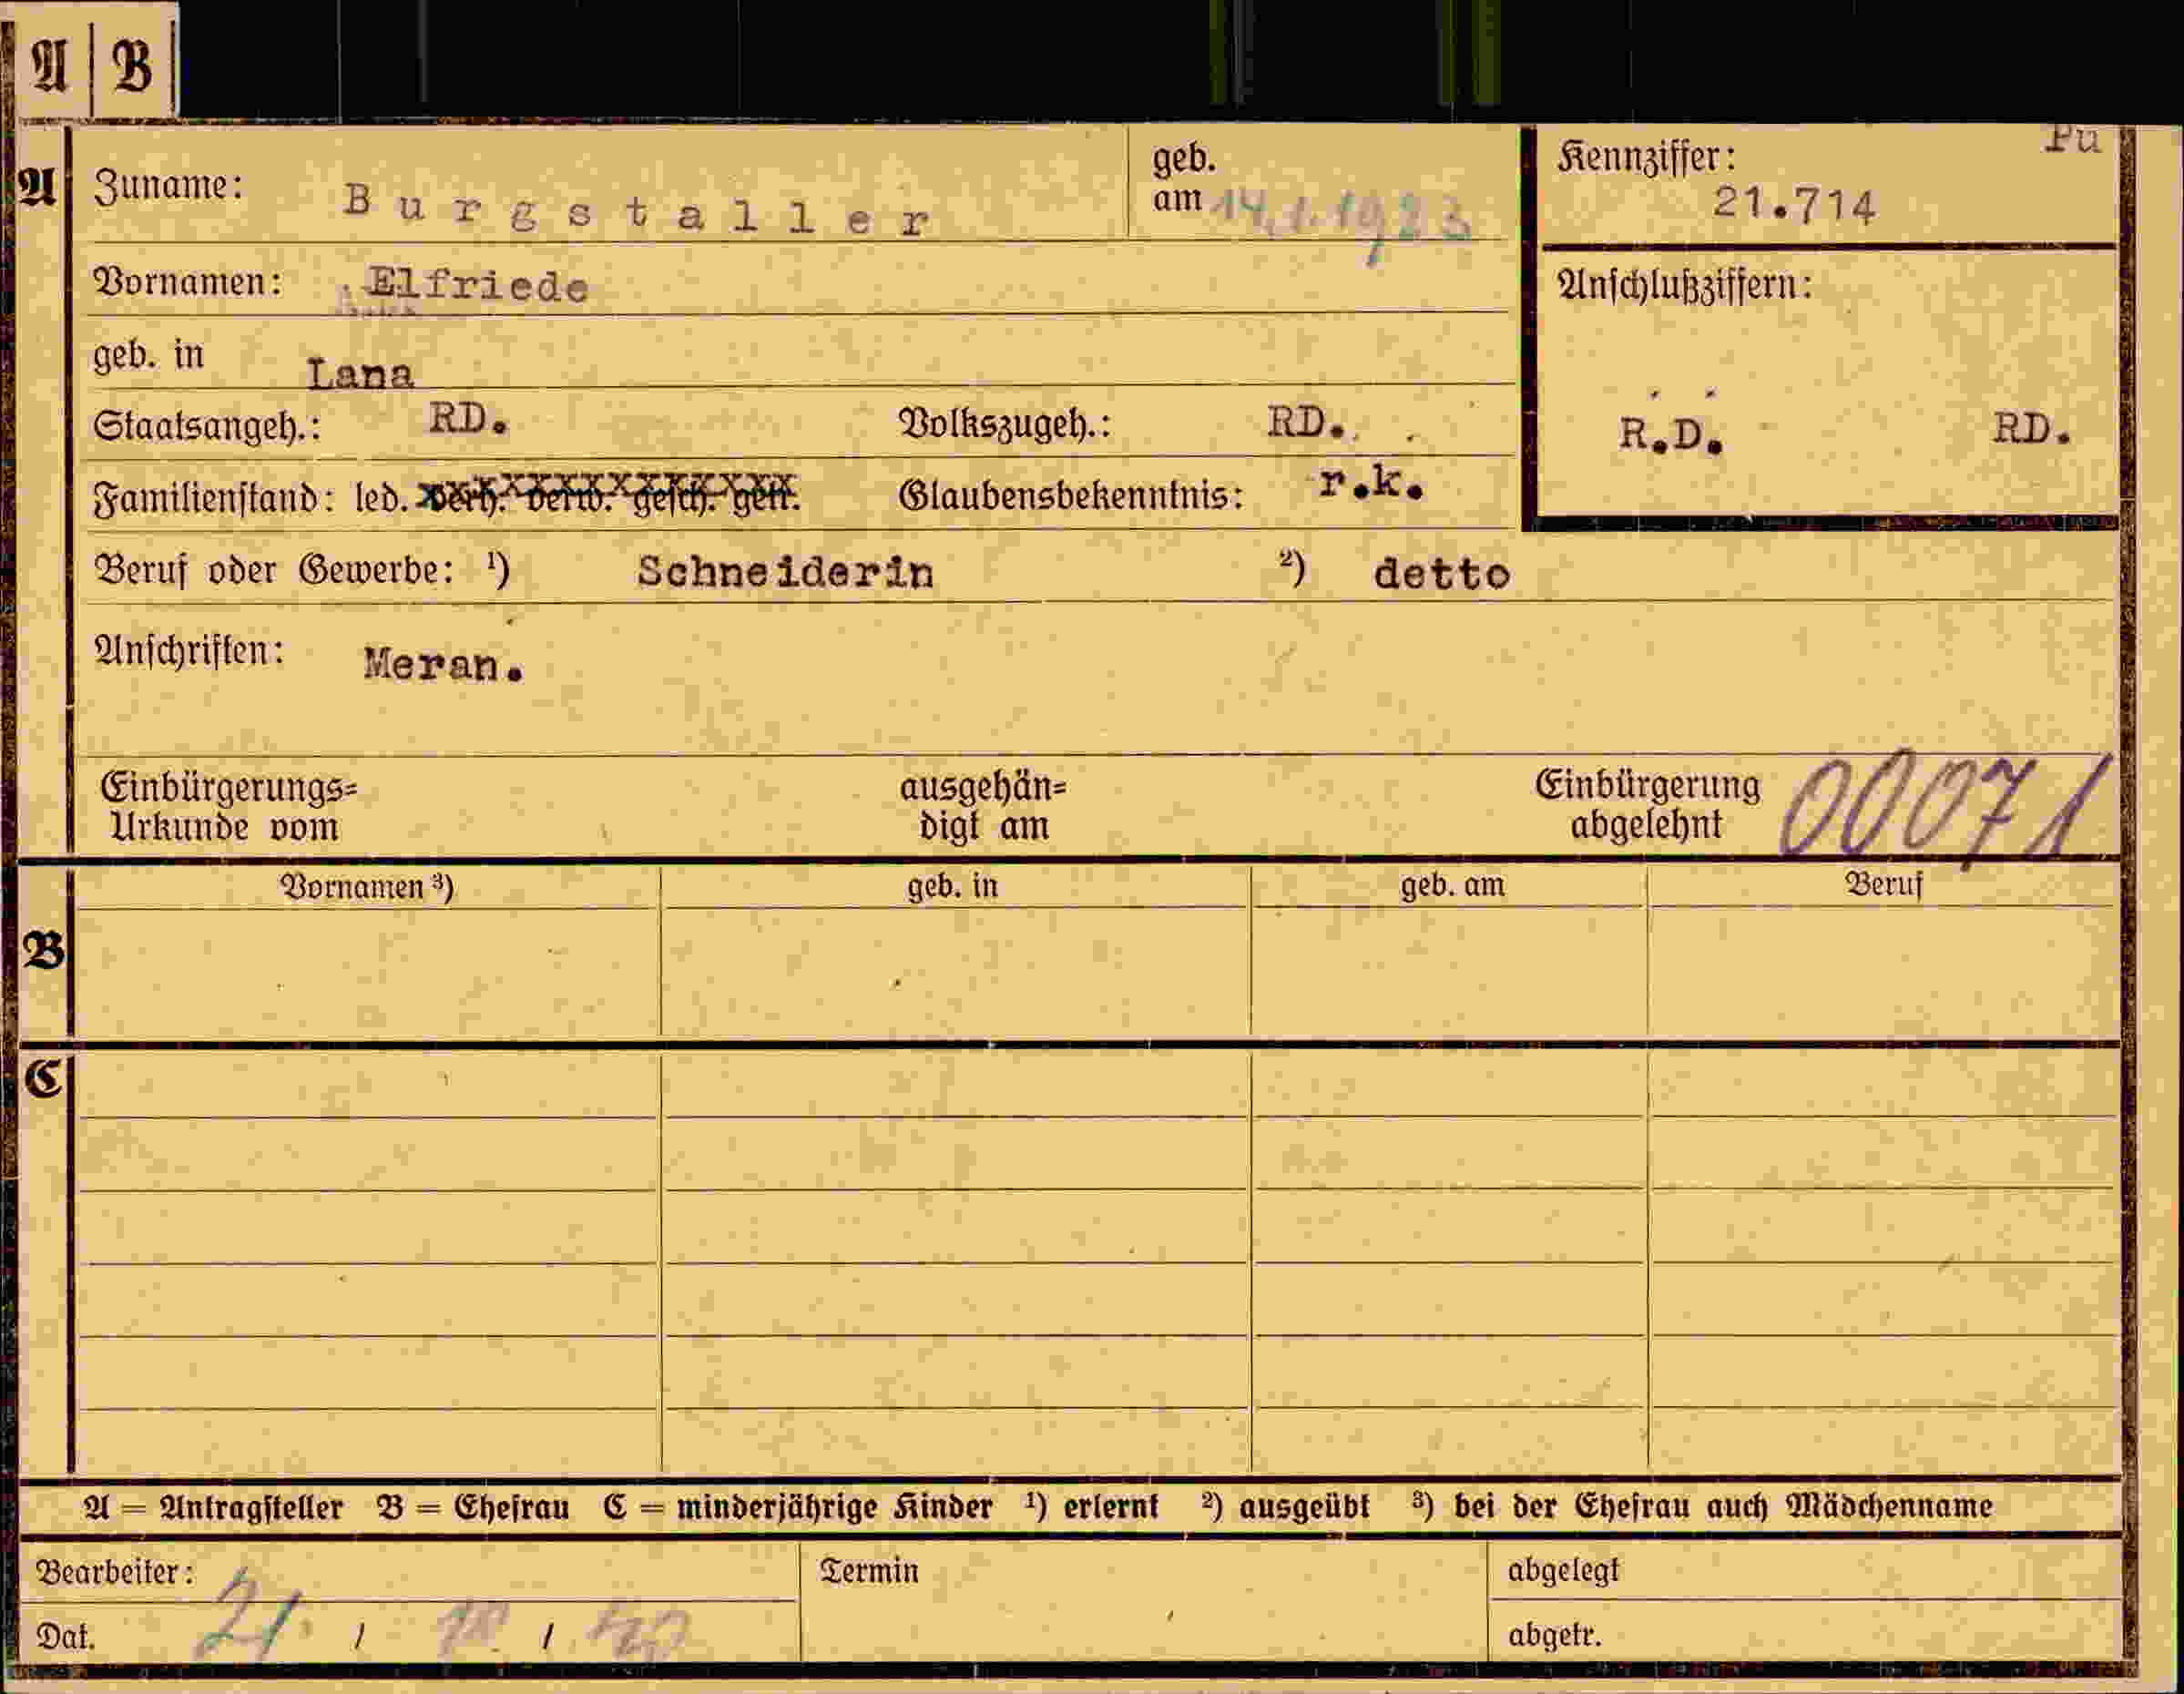 A | B
Pu
A
Zuname: Burgstaller
geb.
am 14.1.1923
Kennziffer:
21.714
Vornamen: Elfriede
Anschlußziffern:
geb. in Lana
Staatsangeh.: RD. Volkszugeh.: RD.
R.D. RD.
Familienstand: led. verh. verw. gesch. getr. Glaubensbekenntnis: r.k.
Beruf oder Gewerbe: ¹) Schneiderin ²) detto
Anschriften: Meran.
Einbürgerungs=
Urkunde vom
ausgehän=
digt am
Einbürgerung
abgelehnt
00071
Vornamen ³) geb. in geb. am Beruf
B
C
A = Antragsteller B = Ehefrau C = minderjährige Kinder ¹) erlernt ²) ausgeübt ³) bei der Ehefrau auch Mädchenname
Bearbeiter: Termin abgelegt
Dat. 21. / 10 / 40 abgetr.